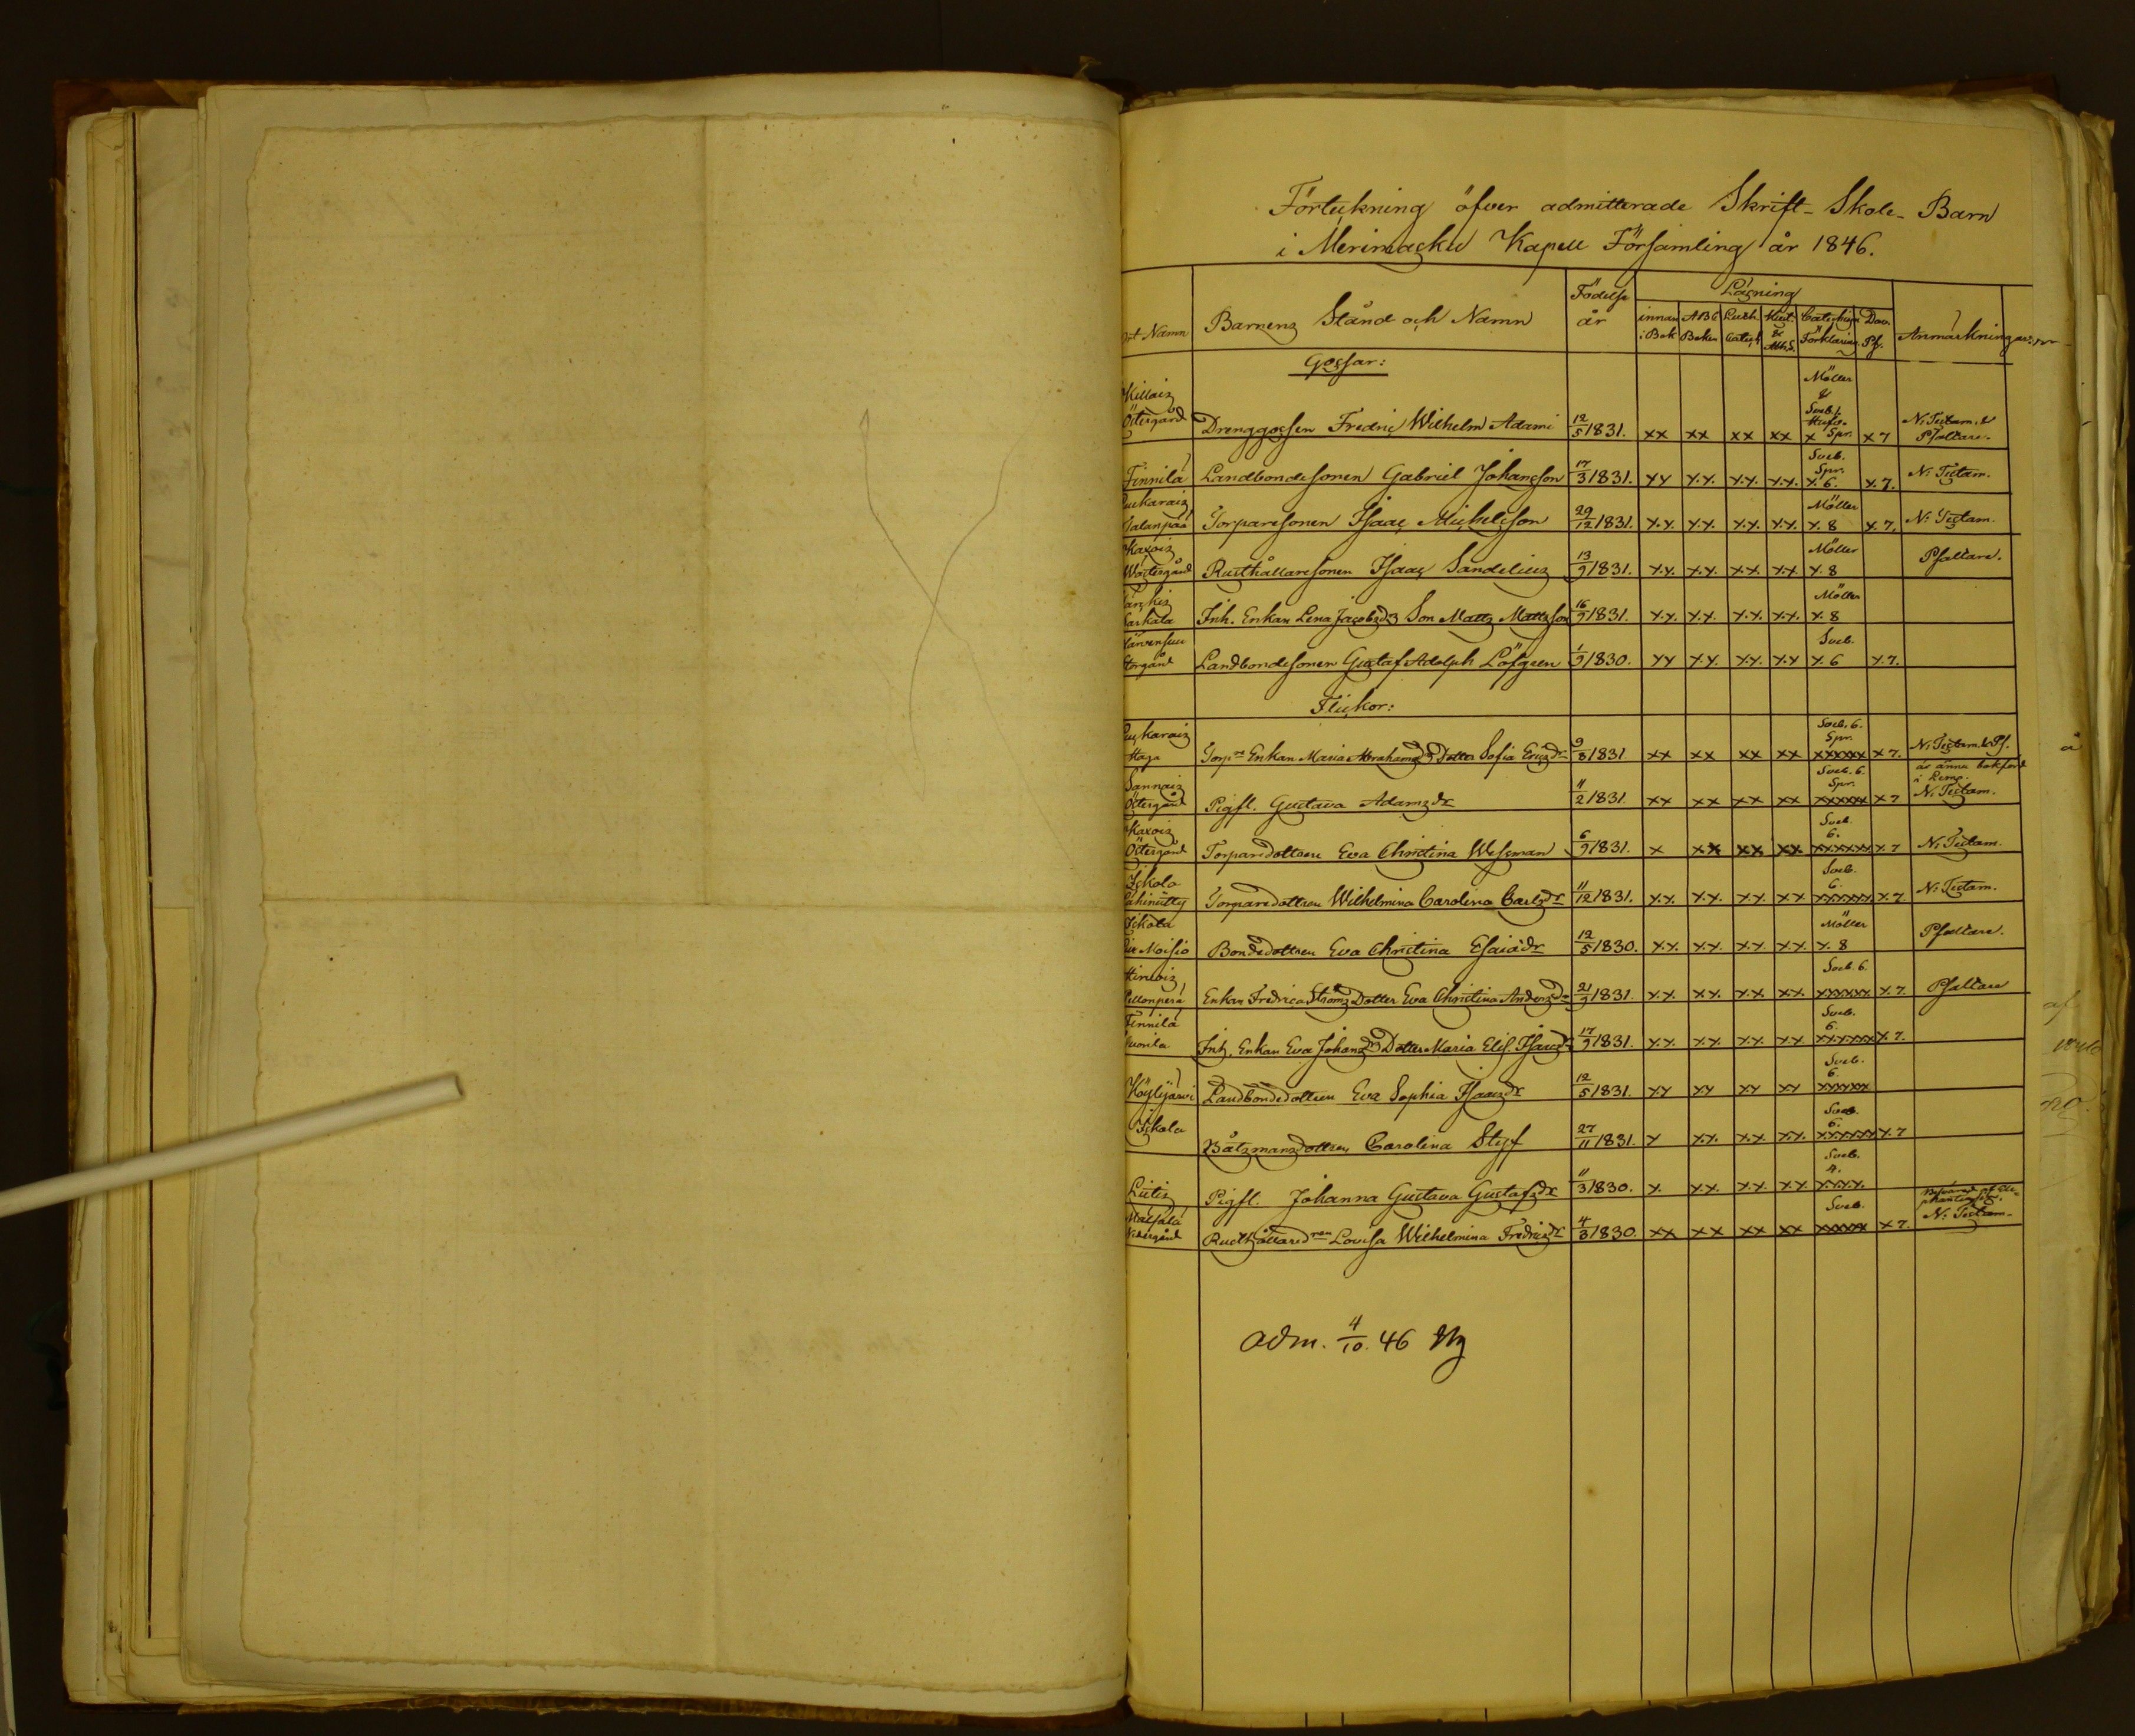 Förteckning öfver admitterade Skrift-Skole-Barn
i Merimasku Kapell Församling år 1846.
Namn Barnens Stånd och Namn Födelse år Läsning Anmärkningar
innan i Bok ABC Boken Luth. Catech. Hust. & Ath.S. Catechism Förklaring Dav. Ps.
Gossar:
Killais Östergård Drenggossen Fredric Wilhelm Adami 12/5 1831. xx xx xx xx Möller & Sveb. Spr. x x 7 N. Testam. & Psaltare.
Finnilä Landbondesonen Gabriel Johansson 17/3 1831. xx x.x. x.x. x.x. Sveb. Spr. x. 6. x. 7. N. Testam.
Jalanpää Torparesonen Isaac Michelsson 29/12 1831. x.x. x.x. x.x. x.x. Möller x. 8 x. 7. N. Testam.
Kaxois Westergård Rusthållaresonen Isaac Sandelius 13/9 1831. x.x. x.x. x.x. x.x. Möller x. 8 Psaltare.
Inh. Enkan Lena Jacobsds Son Matts Mattsson 16/9 1831. x.x. x.x. x.x. x.x. Möller x. 8
Storgård Landbondesonen Gustaf Adolph Löfgren 1/9 1830. xx x.x. x.x. x.x Sveb. x. 6 x. 7.
Flickor:
Haga Torp. Enkan Maria Abrahamsds Dotter Sofia Ericsdr 9/8 1831 xx xx xx xx Sveb. 6. Spr. xxxxxx x 7. N. Testam. & Ps.
Sannais Östergård Pigfl. Gustava Adamsdr 11/2 1831. xx xx xx xx Sveb. 6. Spr. xxxxxx x 7 är ännu bokförd i Lemo. N. Testam.
Kaxois Östergård Torparedottren Eva Christina Wessman 6/9 1831. x xx xx xx Sveb. 6. xxxxxx x. 7 N. Testam.
Iskola Torparedottren Wilhelmina Carolina Carlsdr 11/12 1831. x.x. x.x. x.x. x.x Sveb. 6. xxxxxx x. 7 N. Testam.
Iskola Bondedottren Eva Christina Esaiædr 12/5 1830. x.x. x.x. x.x. x.x. Möller x. 8 Psaltare.
Hirvois Pellonperä Enkan Fredrica Ströms Dotter Eva Christina Andersdr 21/9 1831. x.x. x.x. x.x. x.x. Sveb. 6. xxxxxx x. 7. Psaltare
Finnilä Inh. Enkan Eva Johansds Dotter Maria Elis. Isacsdr 17/9 1831. x.x. x.x. x.x. x.x Sveb. 6. xxxxxx x 7.
Köylijärvi Landbondedottren Eva Sophia Isaacsdr 12/5 1831. xx xx xx xx Sveb. 6. xxxxxx
Iskola Båtsmansdottren Carolina Styf 27/11 1831. x x.x. x.x. x.x. Sveb. 6. xxxxxx x. 7
Lietis Pigfl. Johanna Gustava Gustafsdr 11/3 1830. x. x.x. x.x. x.x Sveb. 4. x.x.x.x.
Rusthållaredren Lovisa Wilhelmina Fredricsdr 4/3 1830. xx xx xx xx Sveb. xxxxx x 7. N. Testam.
adm. 4/10. 46